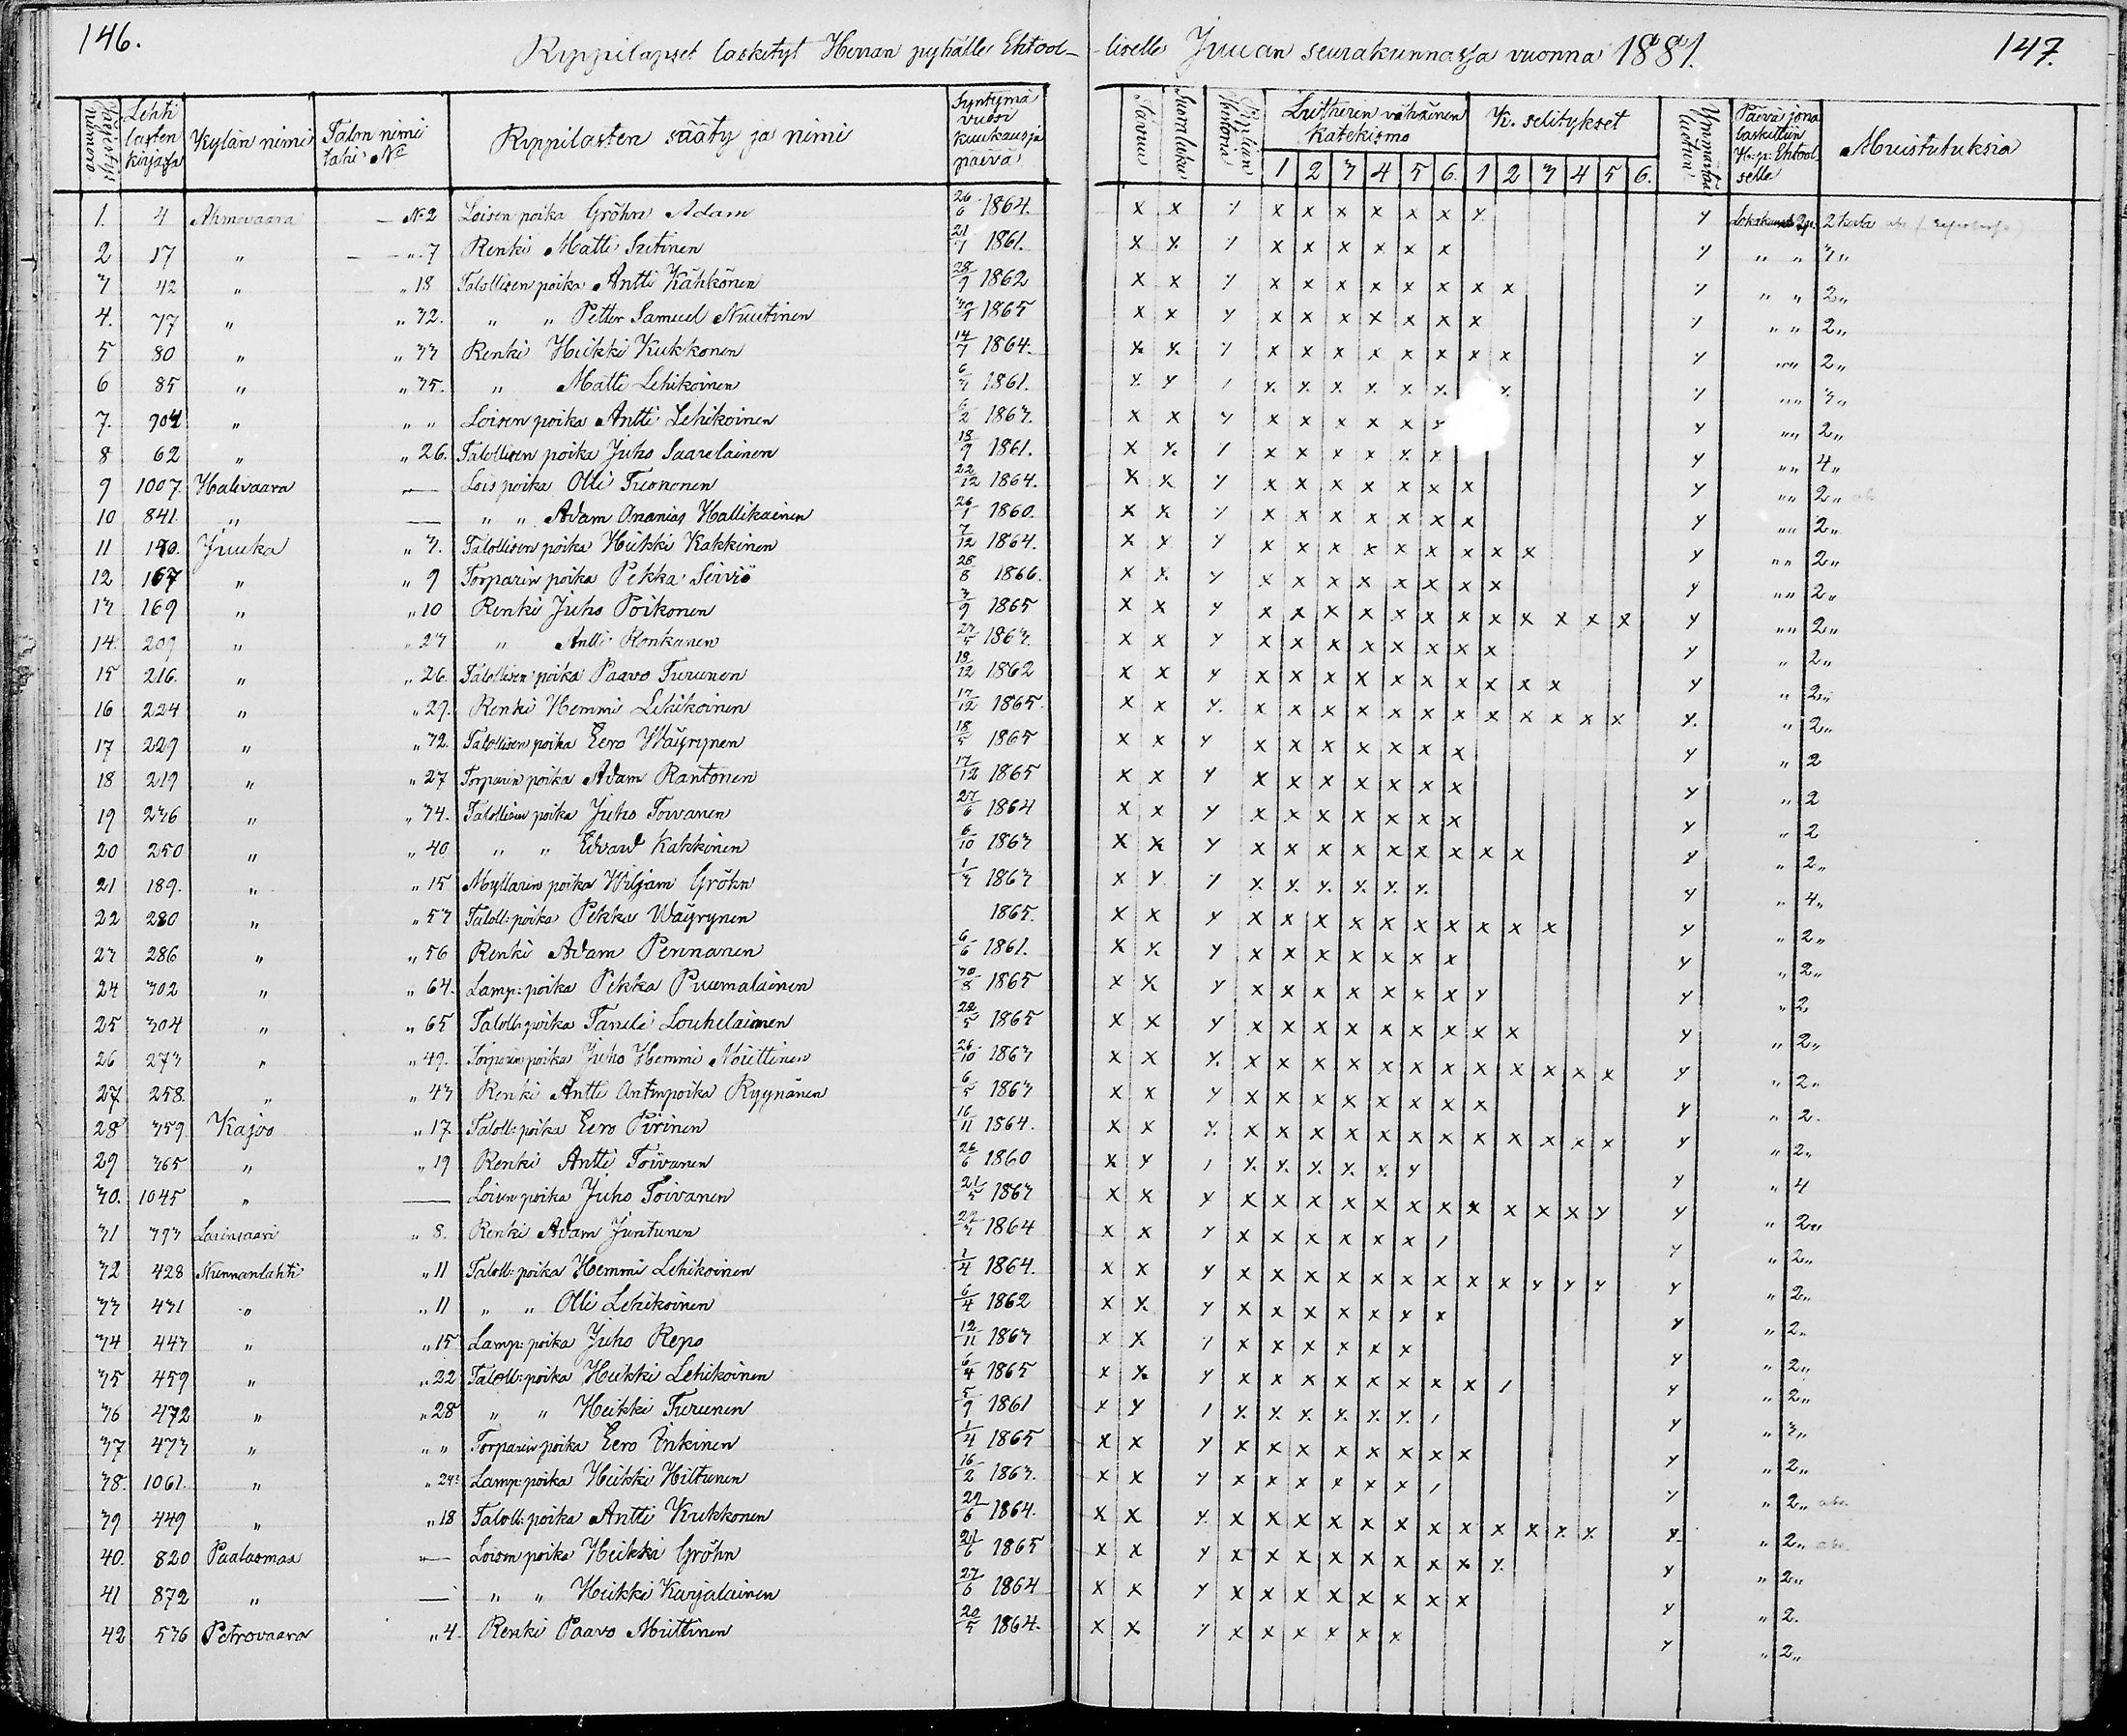 146.
Rippilapset lasketyt Herran pyhälle Ehtool- liselle Juuan seurakunnassa vuonna 1881.
147.
Järjestys numero. Lehti lasten kirjassa Kylän nimi Talon nimi tahi No Rippilasten sääty ja nimi Syntymä vuosi kuukausi ja päivä Sisuralukus Lutherin vähäinen katekismo K. selitykset Ymmärtä Päivä jona laskettiin H: p: Ehtool selle Muistutuksia
1 2 3 4 5 6. 1 2 3 4 5 6.
1. 4 Ahmovaara — No 2 Loisen poika Gröhn Adam 26/6 1864. x x y x x x x x x y y Lokakuus 2 p. 2 kerta
2 17 „ — „ 7 Renki Matti Sutinen 21/7 1861. x x y x x x x x x y „ „ 3 „
3 42 „ „ 18 Talollisen poika Antti Kähkönen 28/9 1862 x x y x x x x x x x x y „ „ 2 „
4. 37 „ „ 32. „ „ Petter Samuel Nuutinen 1865 x x y x x x x x x x y „ „ 2 „
5 80 „ „ 33 Renki Heikki Kukkonen 14/7 1864. x x y x x x x x x x x y „ „ 2 „
6 85 „ „ 35. „ Matti Lehikoinen 6/3 1861. x y / x x x x x x y y „ „ 3 „
7. 904 „ „ „ Loisen poika Antti Lehikoinen 6/2 1863. x x y x x x x x y y „ „ 2 „
8 62 „ „ 26. Talollisen poika Juho Saarelainen 18/9 1861. x x y x x x x x y y „ „ 4 „
9 1007. Halivaara — Lois poika Olli Tuononen 22/12 1864. x x y x x x x x x x y „ „ 2 „
10 841. „ — „ „ Adam Ananias Hallikainen 26/1 1860. x x y x x x x x x x y „ „ 2 „
11 140. Juuka „ 3. Talollisen poika Heikki Kakkinen 7/12 1864. x y y x x x x x x x x x y „ „ 2 „
12 167 „ „ 9 Torparin poika Pekka Serviö 25/8 1866. x x y x x x x x x x x y „ „ 2 „
13 169 „ „ 10 Renki Juho Poikonen 3/9 1865 x x y x x x x x x x x x x x x y „ „ 2 „
14. 209 „ „ 23 „ Antti Ronkanen 27/5 1863. x x y x x x x x x x x y „ 2 „
15 216. „ „ 26. Talollisen poika Paavo Turunen 18/12 1862 x x y x x x x x x x x x x y „ 2 „
16 224 „ „ 29. Renki Hemmi Lehikoinen 17/12 1865. x x y x x x x x x x x x x x x y. „ 2 „
17 229 „ „ 32. Talollisen poika Eero Wäyrynen 18/5 1865 x x y x x x x x x x y „ 2
18 219 „ „ 27 Torparin poika Adam Rantonen 17/12 1865 x x y x x x x x x x y „ 2
19 236 „ „ 34. Talollisen poika Juho Toivanen 27/6 1864 x x y x x x x x x x y „ 2
20 250 „ „ 40 „ „ Edvard Kakkinen 6/10 1863 x x y x x x x x x x x x y „ 2 „
21 189. „ „ 15 Myllärin poika Wiljam Gröhn 1/3 1863 x y y x x x x x x y „ 4 „
22 280 „ „ 53 Taloll: poika Pekka Wäyrynen 1865. x x y x x x x x x x x x x y „ 2 „
23 286 „ „ 56 Renki Adam Pennanen 6/6 1861. x x y x x x x x x x y „ 2 „
24 302 „ „ 64. Lamp: poika Pekka Puumalainen 30/8 1865 x x y x x x x x x x y y „ 2
25 304 „ „ 65 Taloll: poika Taneli Louhelainen 22/5 1865 x x y x x x x x x x x x y „ 2 „
26 273 „ „ 49. Torparin poika Juho Hemmi Miettinen 26/10 1863 x x y x x x x x x x x x x x x y „ 2 „
27 258. „ „ 43 Renki Antti Antinpoika Ryynänen 6/5 1863 x x y x x x x x x x x y „ 2.
28 359 Kajoo „ 17. Taloll: poika Eero Pirinen 16/11 1864. x x y x x x x x x x x x x x x y „ 2 „
29 365 „ „ 19 Renki Antti Toivanen 26/6 1860 x y / x x x x x y y „ 4
30. 1045 „ — Loisen poika Juho Toivanen 21/5 1863 x x y x x x x x x x x x x x y y „ 2 „
31 393 Larinsaari „ 8. Renki Adam Juntunen 1864 x x y x x x x x x / y „ 2 „
32 428 Nunnanlahti „ 11 Taloll: poika Hemmi Lehikoinen 1/4 1864. x x y x x x x x x x x x y y y y „ 2 „
33 431 „ „ 11 „ „ Olli Lehikoinen 6/4 1862 x x y x x x x x x x y „ 2 „
34 443 „ „ 15 Lamp: poika Juho Repo 12/11 1863 x x y x x x x x x y „ 2 „
35 459 „ „ 22 Taloll: poika Heikki Lehikoinen 6/4 1865 x x y x x x x x x x x / y „ 2 „
36 472 „ „ 28 „ „ Heikki Turunen 5/9 1861 x y / x x x x x x / y „ 3 „
37 473 „ „ „ Torparin poika Eero Inkinen 1/4 1865 x x y x x x x x x x x y „ 2 „
38. 1061. „ „ 24. Lamp: poika Heikki Hiltunen 16/2 1863. x x y x x x x x x / y „ 2 „
39 449 „ „ 18 Taloll: poika Antti Kukkonen 29/6 1864. x x y x x x x x x x x x x x x y „ 2 „
40. 820 Paalasmaa — Loisen poika Heikki Gröhn 21/6 1865 x x y x x x x x x x x y y „ 2 „
41 872 „ — „ „ Heikki Karjalainen 27/6 1864 x x y x x x x x x x x y „ 2.
42 536 Petrovaara „ 4. Renki Paavo Miettinen 20/5 1864. x x y x x x x x x y „ 2 „